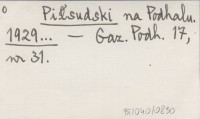 Piłsudski na Podhalu.
1929... — Gaz. Podh. 17,
nr 31.